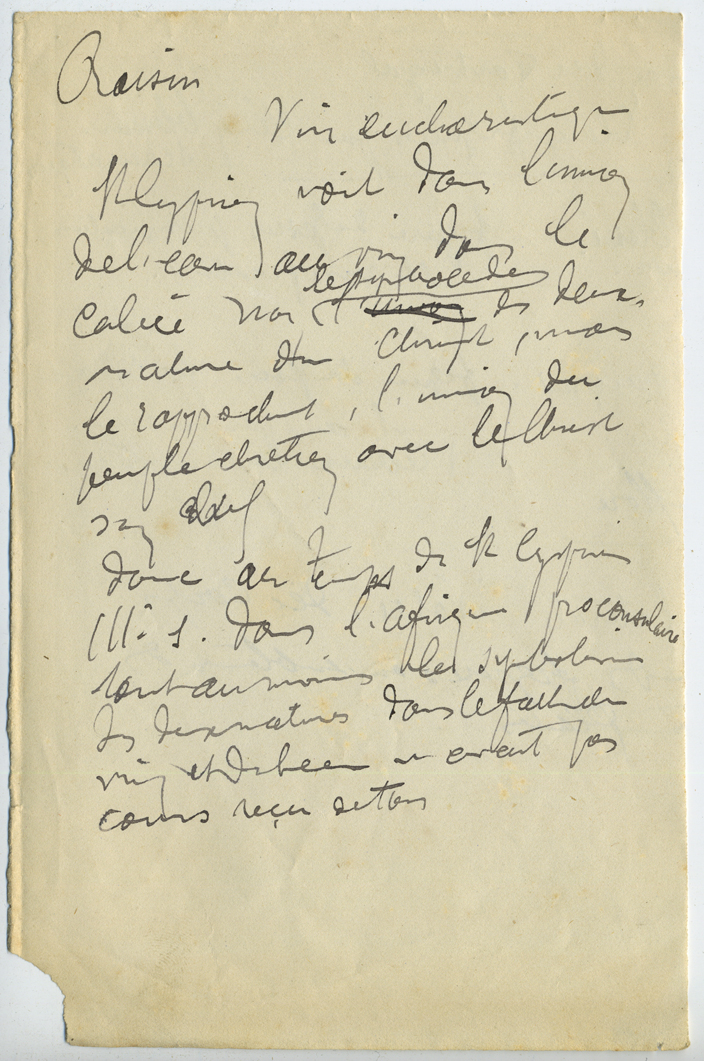 Raisin
Vin eucharistique
St Cyprien voit dans l'union
de l'eau au vin dans le
calice non l'union des deux
nature du Christ, mais
le rapprochant, l'union du
peuple chrétien avec le Christ
son
donc au temps de St Cyprien
IIIe s. dans l'afrique proconsulaire
tout au moins le symbolisme
des deux natures dans le fait du
vin et de l'eau n'avait pas
cours reçu de tous